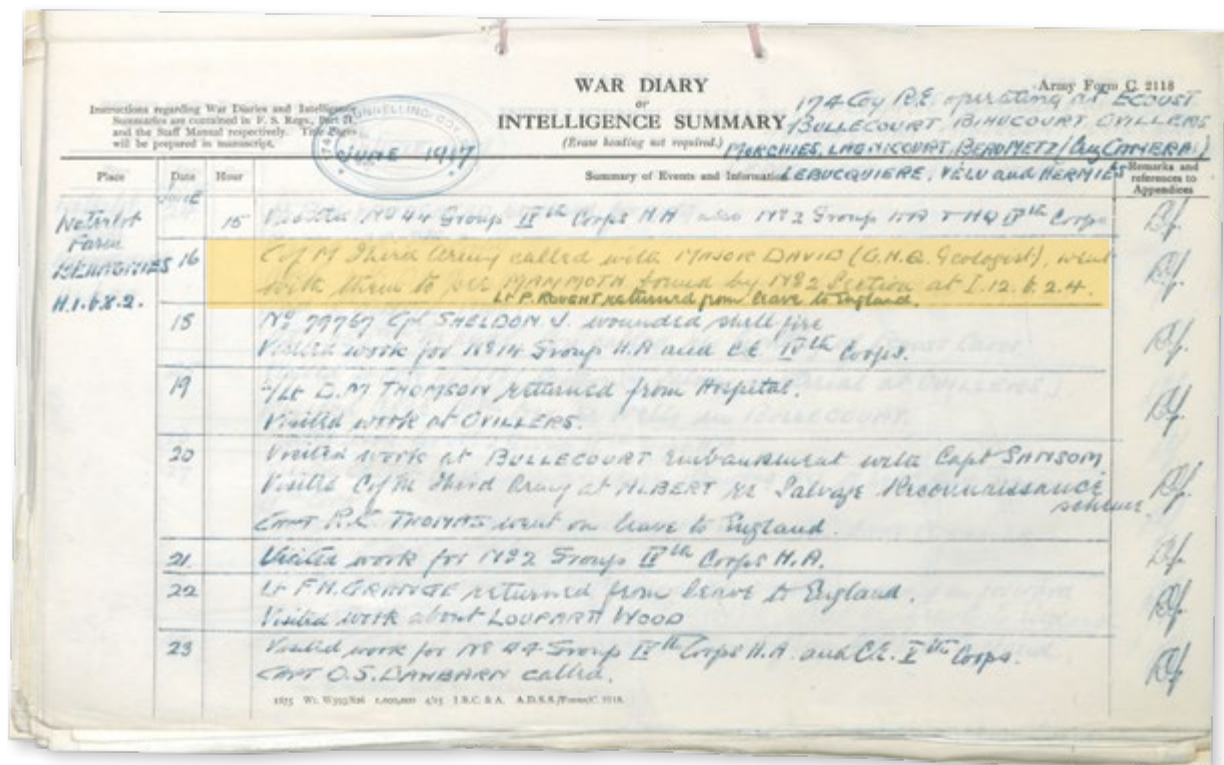 WAR DIARY
or
INTELLIGENCE SUMMARY
(Erase heading not required.)
Army Form C. 2118
Instructions regarding War Diaries and Intelligence
Summaries are contained in F. S. Regs., Part II.
and the Staff Manual respectively. Title Pages
will be prepared in manuscript.
TUNNELLING COY
JUNE 1917
174 Coy R.E. operating at ECOUST
BULLECOURT, BIHUCOURT OVILLERS
MORCHIES, LAGNICOURT, BEAUMETZ
LEBUCQUIERE, VELU and HERMIES
Place Date Hour Summary of Events and Information Remarks and
references to
Appendices
JUNE
15 Visited No 44 Group IVth Corps H.A also No 2 Group HA & HQ IVth Corps
Farm
16 C of M Third Army called with MAJOR DAVID (G.H.Q. Geologist), went
H.1.b.8.2.
with them to see MAMMOTH found by No 2 Section at I.12.b.2.4.
Lt P. ROUGHT returned from leave to England.
18 No 79767 Cpl SHELDON J. wounded shell fire
Visited work for No 14 Group H.A and CE IVth Corps.
19 2/Lt D.M THOMSON returned from Hospital.
Visited work at OVILLERS.
20 Visited work at BULLECOURT Embankment with Capt SANSOM
Visited C of M Third Army at ALBERT re Salvage Reconnaissance
scheme.
CAPT R.C THOMAS went on leave to England.
21 Visited work for No 2 Group IVth Corps H.A.
22 Lt F.H. GRANGE returned from leave to England.
Visited work about LOUPART WOOD
23 Visited work for No 44 Group IVth Corps H.A. and C.E. Corps.
CAPT O.S. DANBARN called.
1875 Wt. W593/826 1,000,000 4/15 J.B.C. & A. A.D.S.S./Forms/C. 2118.